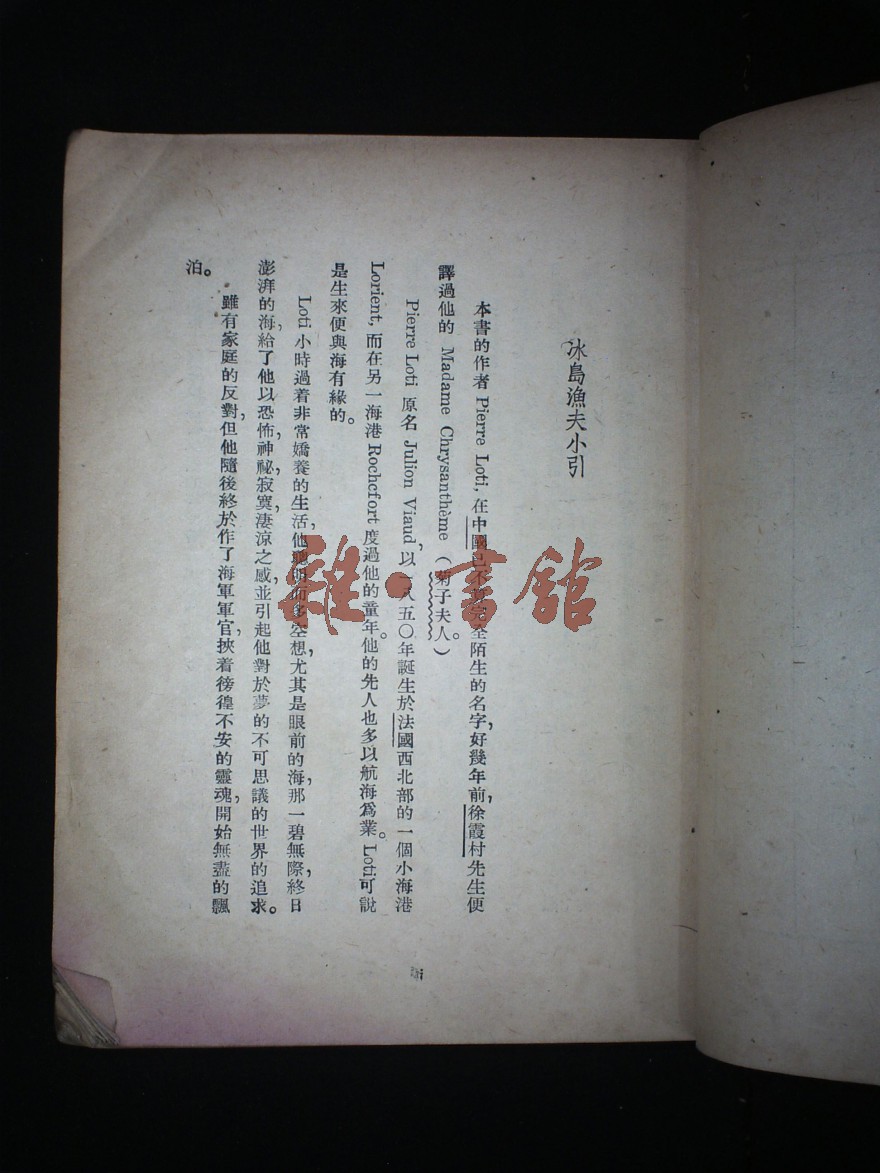 冰島漁夫小引
本書的作者 Pierre Loti, 在中國已不算完全陌生的名字,好幾年前,徐霞村先生便
譯過他的 Madame Chrysanthème (菊子夫人。)
Pierre Loti 原名 Julion Viaud, 以一八五〇年誕生於法國西北部的一個小海港
Lorient, 而在另一海港 Rochefort 度過他的童年。他的先人也多以航海爲業。Loti可說
是生來便與海有緣的。
Loti 小時過着非常嬌養的生活,他聰明而多空想,尤其是眼前的海,那一碧無際,終日
澎湃的海,給了他以恐怖,神祕,寂寞,淒涼之感,並引起他對於夢的不可思議的世界的追求。
雖有家庭的反對,但他隨後終於作了海軍軍官,挾着徬徨不安的靈魂,開始無盡的飄
泊。
雜·書館